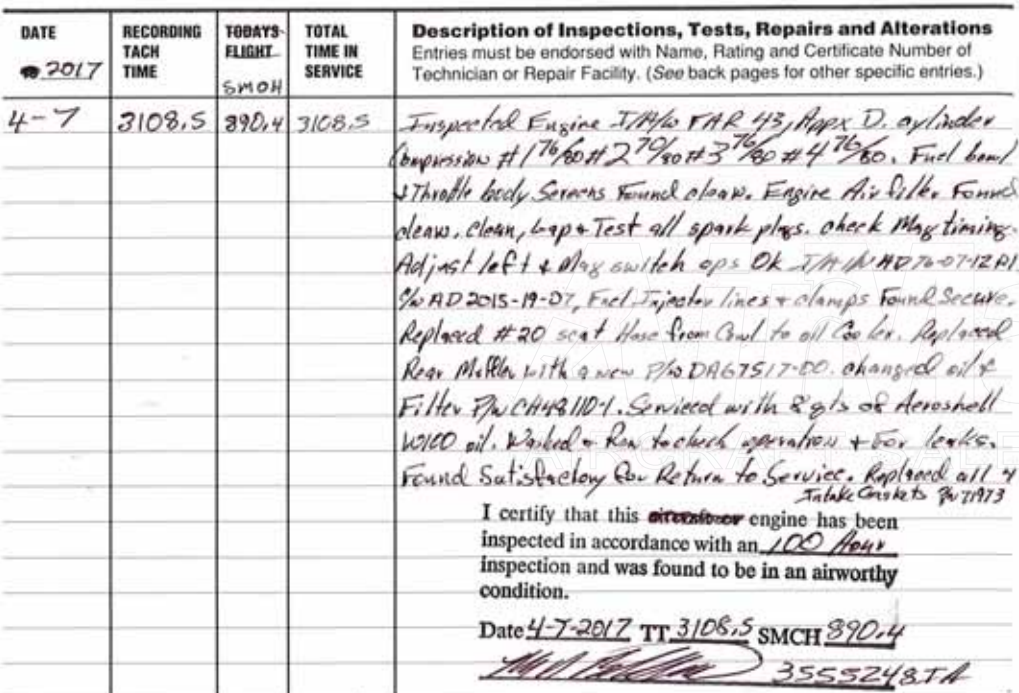 DATE
2017
RECORDING TACH TIME
TODAYS FLIGHT
SMOH
TOTAL TIME IN SERVICE
Description of Inspections, Tests, Repairs and Alterations
Entries must be endorsed with Name, Rating and Certificate Number of
Technician or Repair Facility. (See back pages for other specific entries.)
4-7 3108.5 890.4 3108.5 Inspected Engine I/A/W FAR 43, Appx D. cylinder
Compression #1 76/80 #2 79/80 #3 76/80 #4 76/80. Fuel bowl
& Throttle body Screens Found clean. Engine Air filter Found
clean. Clean, Gap & Test all spark plugs. check Mag timing.
Adjust left & Mag switch ops OK I/A/W AD 76-07-12 R1.
C/W AD 2015-19-07, Fuel Injector lines & clamps Found Secure.
Replaced #20 scat Hose from Cowl to oil Cooler. Replaced
Rear Muffler with a new P/N DA67517-00. changed oil &
Filter P/N CH48110-1. Serviced with 8 qts of Aeroshell
W100 oil. Washed & Ran to check operation & For leaks.
Found Satisfactory for Return to Service. Replaced all 4
Intake Gaskets P/N 71973
I certify that this aircraft or engine has been
inspected in accordance with an 100 Hour
inspection and was found to be in an airworthy
condition.
Date 4-7-2017 TT 3108.5 SMCH 890.4
3555248IA